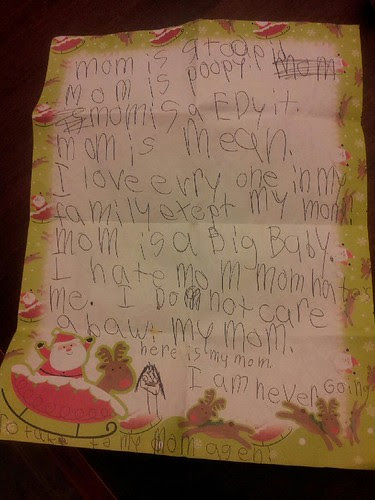 mom is a toopid
mom is poopy. mom
mom is a EDy it.
mom is mean.
I love evry one in my
family exept my mom.
mom is a Big Baby.
I hate mom mom hates
me. I Do not care
a bawt my mom.
here is my mom
I am never Going
to talk to my mom agen